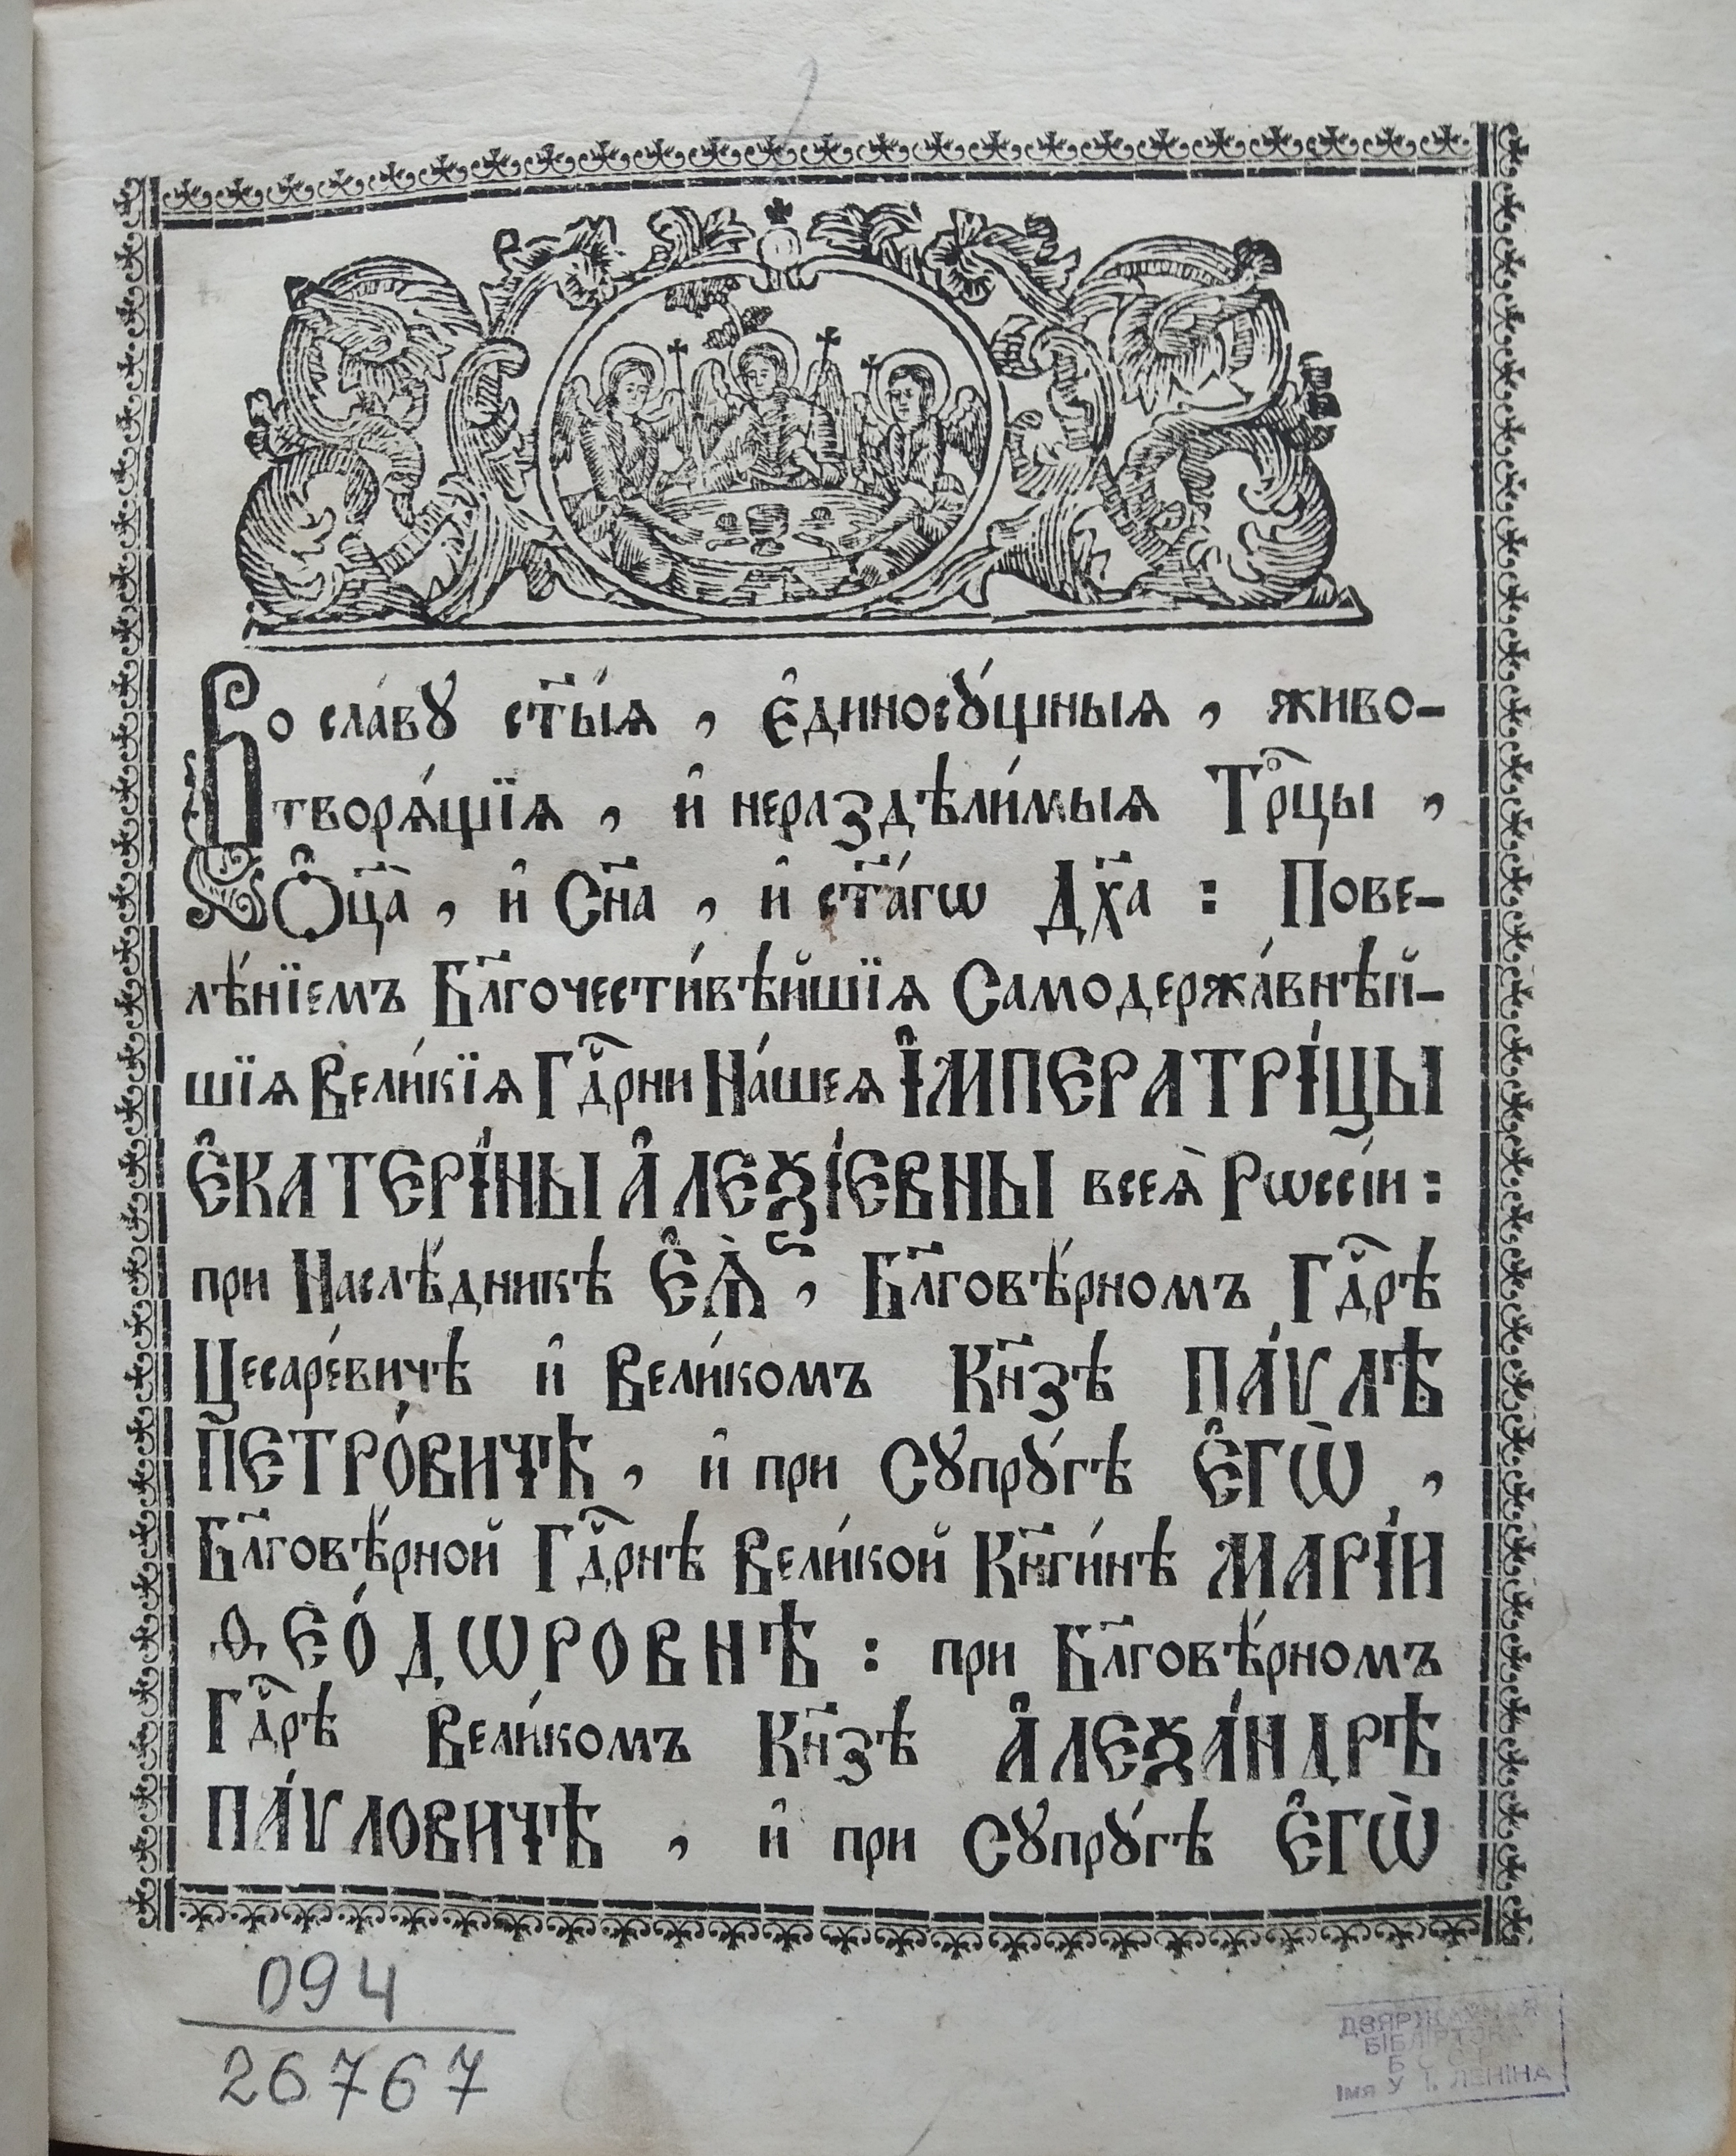 Во сла́вꙋ ст҃ы́ѧ , є҆динос꙽ꙋ́щныѧ , живо-
творѧ́щїѧ , и҆ нераздѣли́мыѧ Трⷪ҇цы ,
Ѻ҆ц҃а̀ , и҆ Сн҃а , и҆ ст҃а́гѡ Дх҃а : Пове-
лѣ́нїемъ Бл҃гочести́вѣйшїѧ Самодержа́внѣй-
шїѧ Вели́кїѧ Гдⷭ҇рни На́шеѧ І҆МПЕРАТРІ́ЦЫ
Є҆КАТЕРІ́НЫ А҆ЛЕѮІ́ЕВНЫ всеѧ̀ Рѡссі́и :
при Наслѣ́дникѣ Є҆Ѧ̀ , Бл҃говѣ́рномъ Гдⷭ҇рѣ
Цесаре́вичѣ и҆ Вели́комъ Кн҃зѣ ПА́ѴЛѢ
ПЕТРО́ВИЧѢ , и҆ при Сꙋпрꙋ́гѣ Є҆ГѠ̀ ,
Бл҃говѣ́рной Гдⷭ҇рнѣ Вели́кой Кн҃ги́нѣ МАРІ́И
ѲЕО́ДѠРОВНѢ : при Бл҃говѣ́рномъ
Гдⷭ҇рѣ Вели́комъ Кн҃зѣ А҆ЛЕѮА́НДРѢ
ПА́ѴЛОВИЧѢ , и҆ при Сꙋпрꙋ́гѣ Є҆ГѠ̀
094
26767
ДЗЯРЖАЎНАЯ
БІБЛІЯТЭКА
Б С С Р
Імя У. І. ЛЕНІНА